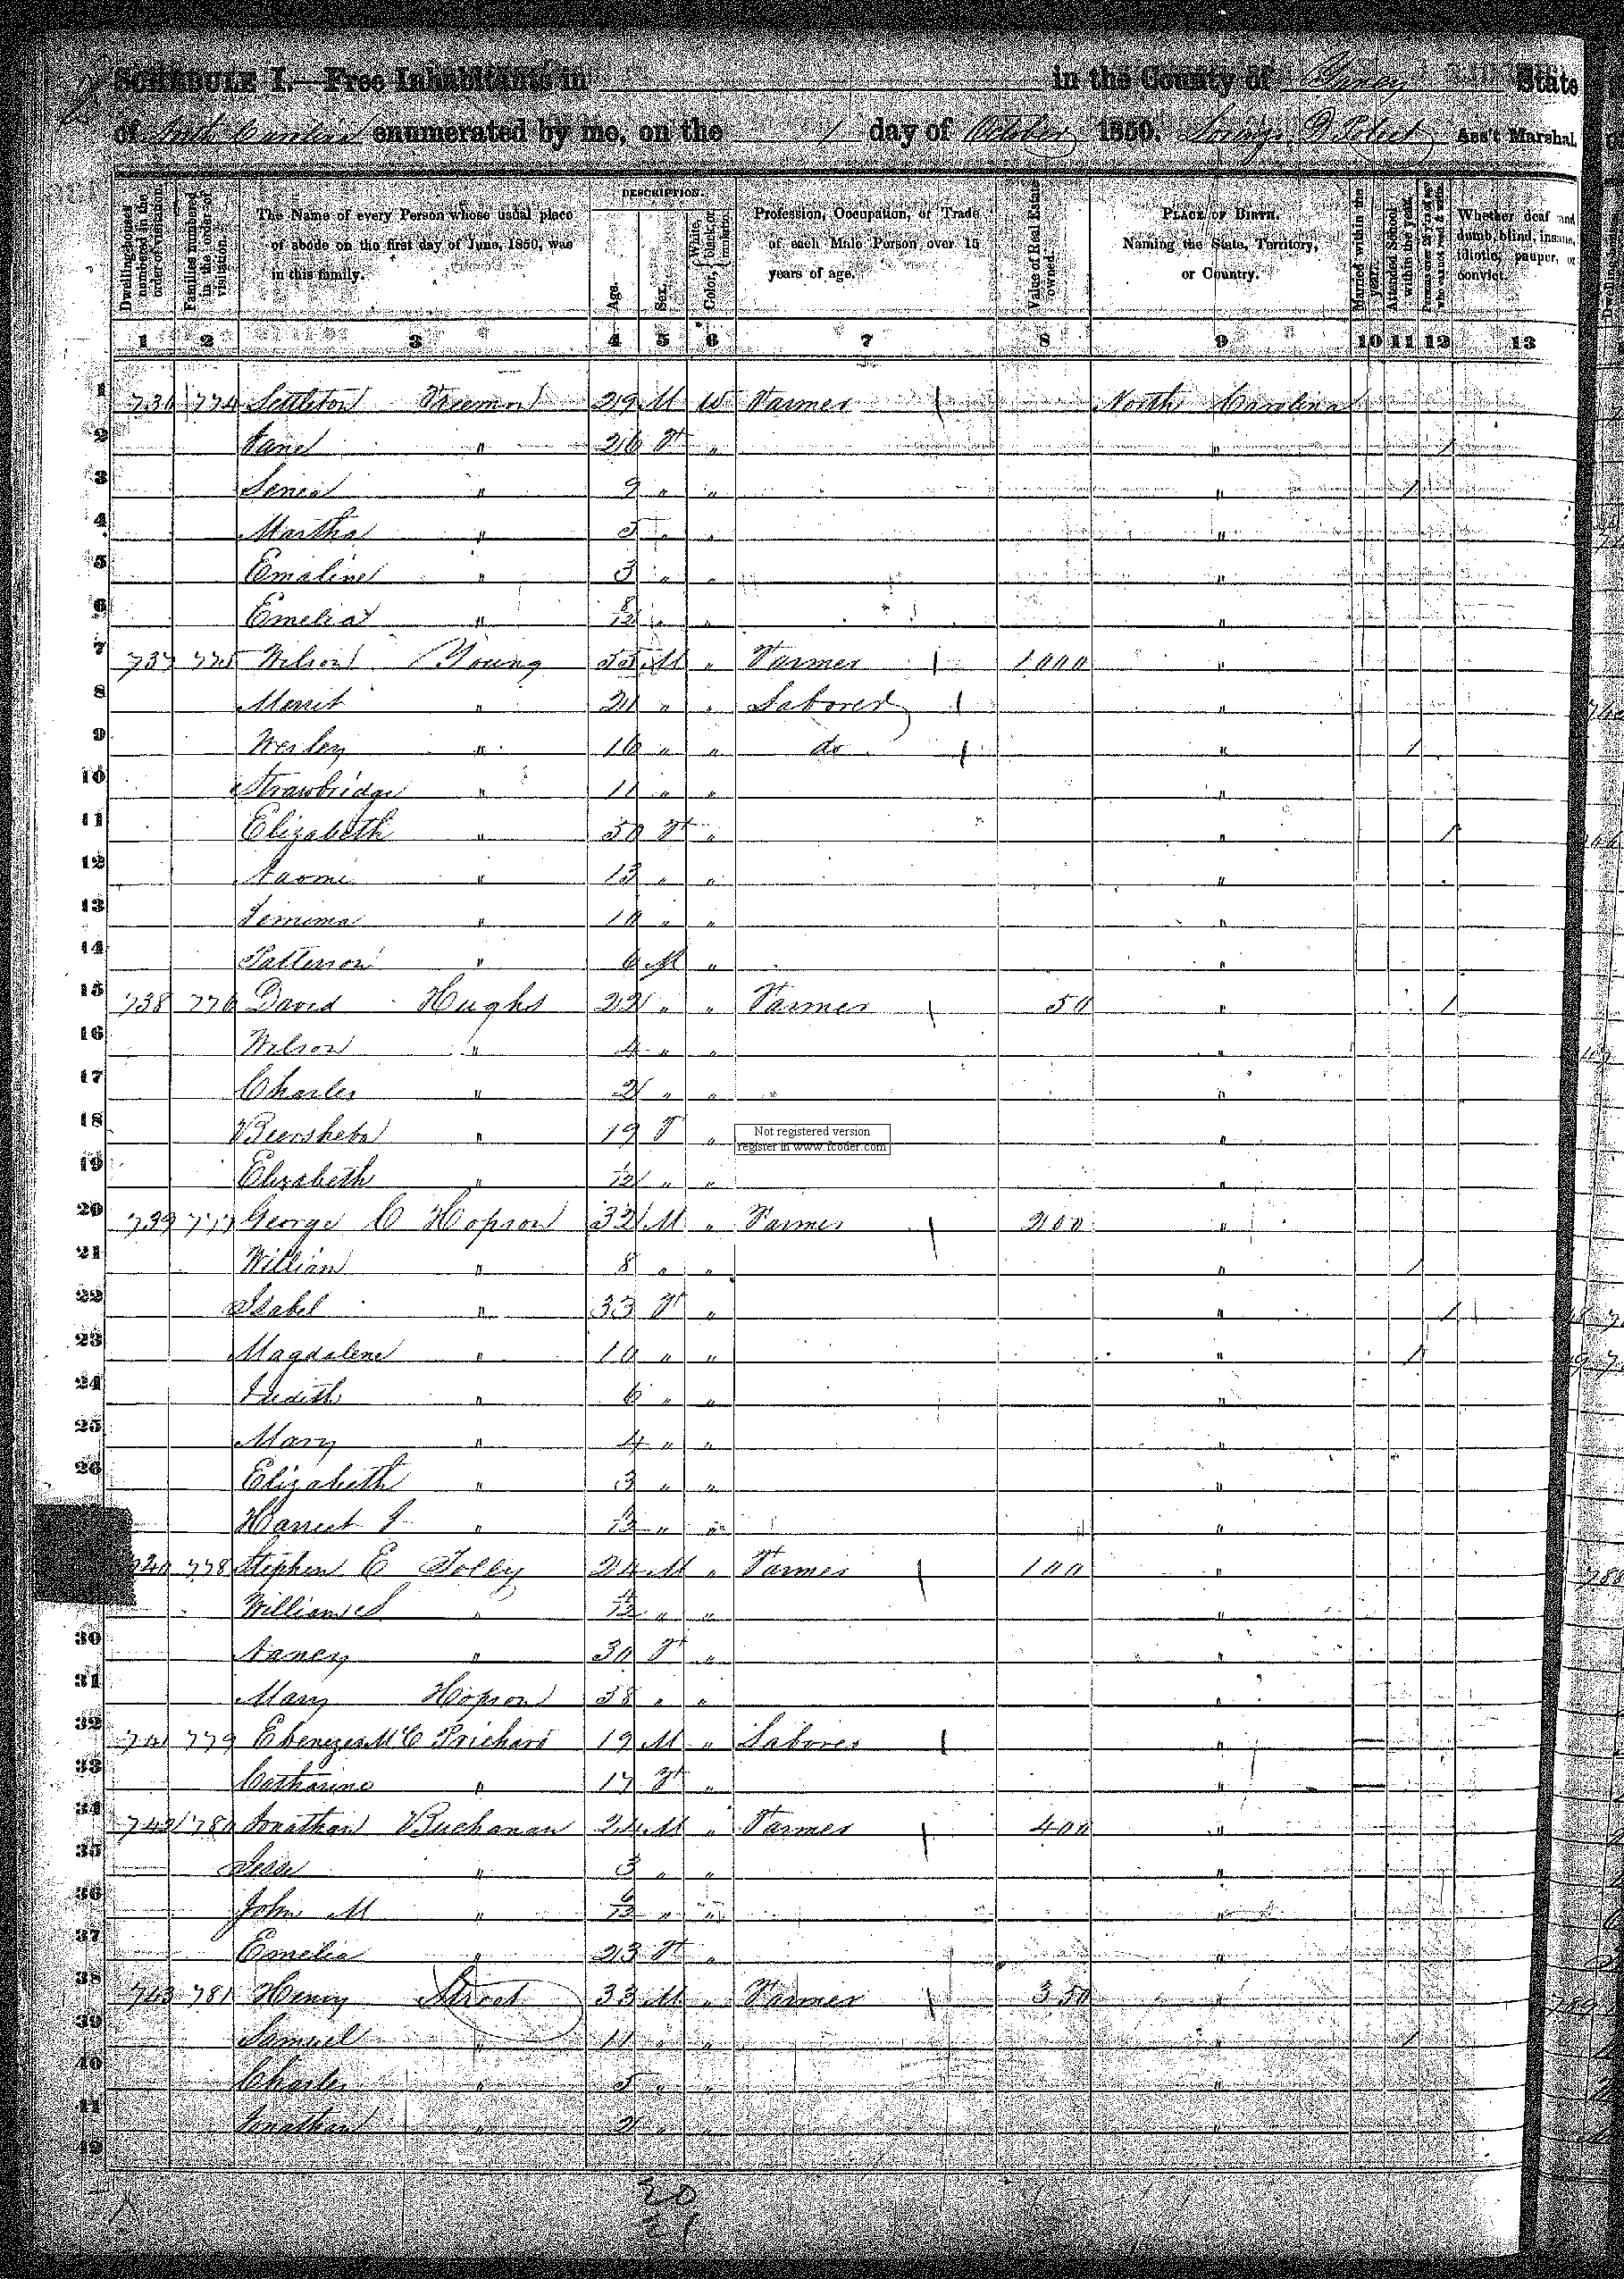 SCHEDULE I.—Free Inhabitants in in the County of Yancey State
of North Carolina enumerated by me, on the 1 day of October 1850. Ass't Marshal.
Dwelling-houses numbered in the order of visitation.
Families numbered in the order of visitation.
The Name of every Person whose usual place of abode on the first day of June, 1850, was in this family.
DESCRIPTION.
Age.
Sex.
Color, { White, black, or mulatto.
Profession, Occupation, or Trade of each Male Person over 15 years of age.
Value of Real Estate owned.
PLACE OF BIRTH. Naming the State, Territory, or Country.
Married within the year.
Attended School within the year.
Persons over 20 y'rs of age who cannot read & write.
Whether deaf and dumb, blind, insane, idiotic, pauper, or convict.
1 2 3 4 5 6 7 8 9 10 11 12 13
1 736 774 Settleton Freemon 29 M W Farmer North Carolina
2 Jane " 26 F " " 1
3 Senea " 9 " " " 1
4 Martha " 5 " " "
5 Emaline " 3 " " "
6 Emelia " 8/12 " " "
7 737 775 Wilson Young 55 M " Farmer 1000 "
8 Merrit " 21 " " Laborer "
9 Wesley " 16 " " do " 1
10 Strawbridge " 11 " " "
11 Elizabeth " 50 F " " 1
12 Naomi " 13 " " "
13 Jemima " 10 " " "
14 Patterson " 6 M " "
15 738 776 David Hughs 22 " " Farmer 50 " 1
16 Wilson " 4 " " "
17 Charles " 2 " " "
18 Beersheba " 19 F " "
19 Elizabeth " 1/12 " " "
Not registered version
register in www.fcoder.com
20 739 777 George C Hopson 32 M " Farmer 200 "
21 William " 8 " " " 1
22 Isabel " 33 F " " 1
23 Magdalene " 10 " " " 1
24 Judith " 6 " " "
25 Mary " 4 " " "
26 Elizabeth " 3 " " "
Harriet J " " " "
740 778 Stephen E Tolley 24 M " Farmer 100 "
William S " 4/12 " " "
30 Nancy " 30 F " "
31 Mary Hopson 38 " " "
32 741 779 Ebenezer McC Prichard 19 M " Laborer "
33 Catharine " 17 F " "
34 742 780 Jonathan Buchanan 24 M " Farmer 400 "
35 Jesse " 3 " " "
36 John M " 6/12 " " "
37 Emelia " 23 F " "
38 743 781 Henry Street 33 M " Farmer 350 "
39 Samuel " 11 " " " 1
40 Charles " 5 " " "
41 Jonathan " 2 " " "
42
20
21